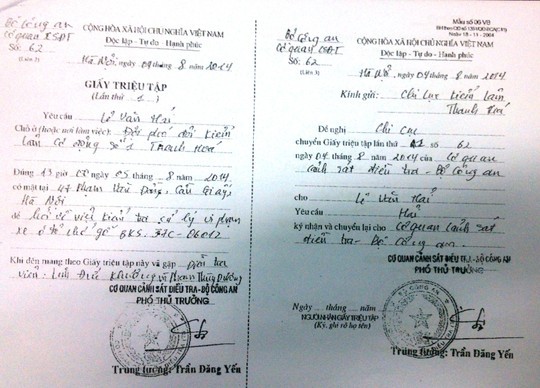 Bộ Công an
Cơ quan CSĐT
Số: 62
(Liên 2)
CỘNG HÒA XÃ HỘI CHỦ NGHĨA VIỆT NAM
Độc lập - Tự do - Hạnh phúc
Hà Nội, ngày 04 tháng 8 năm 2014
GIẤY TRIỆU TẬP
(Lần thứ 1)
Yêu cầu Lê Văn Hải
Chỗ ở (hoặc nơi làm việc): Đội phó đội kiểm
lâm cơ động số 1 Thanh Hoá
Đúng 13 giờ 00 ngày 05 tháng 8 năm 2014
có mặt tại 47 Phạm Văn Đồng, Cầu Giấy,
Hà Nội
để hỏi về việc kiểm tra xử lý vi phạm
xe ô tô chở gỗ BKS: 37C-06012
Khi đến mang theo Giấy triệu tập này và gặp Điều tra
viên: Linh Đức Khương và Phạm Thùy Dương
CƠ QUAN CẢNH SÁT ĐIỀU TRA - BỘ CÔNG AN
PHÓ THỦ TRƯỞNG
Trung tướng: Trần Đăng Yến
Mẫu số 06/VB
Ngày 18 - 11 - 2004
Bộ Công an
Cơ quan CSĐT
Số: 62
(Liên 3)
CỘNG HÒA XÃ HỘI CHỦ NGHĨA VIỆT NAM
Độc lập - Tự do - Hạnh phúc
Hà Nội, ngày 04 tháng 8 năm 2014
Kính gửi: Chi cục Kiểm lâm
Thanh Hoá
Đề nghị Chi cục
chuyển Giấy triệu tập lần thứ 1 số 62
ngày 04 tháng 8 năm 2014 của Cơ quan
Cảnh sát điều tra - Bộ Công an
cho Lê Văn Hải
Yêu cầu Hải
ký nhận và chuyển lại cho Cơ quan Cảnh sát
điều tra - Bộ Công an
CƠ QUAN CẢNH SÁT ĐIỀU TRA - BỘ CÔNG AN
PHÓ THỦ TRƯỞNG
Ngày ..... tháng ..... năm
NGƯỜI NHẬN GIẤY TRIỆU TẬP
(Ký, ghi rõ họ tên)
Trung tướng: Trần Đăng Yến